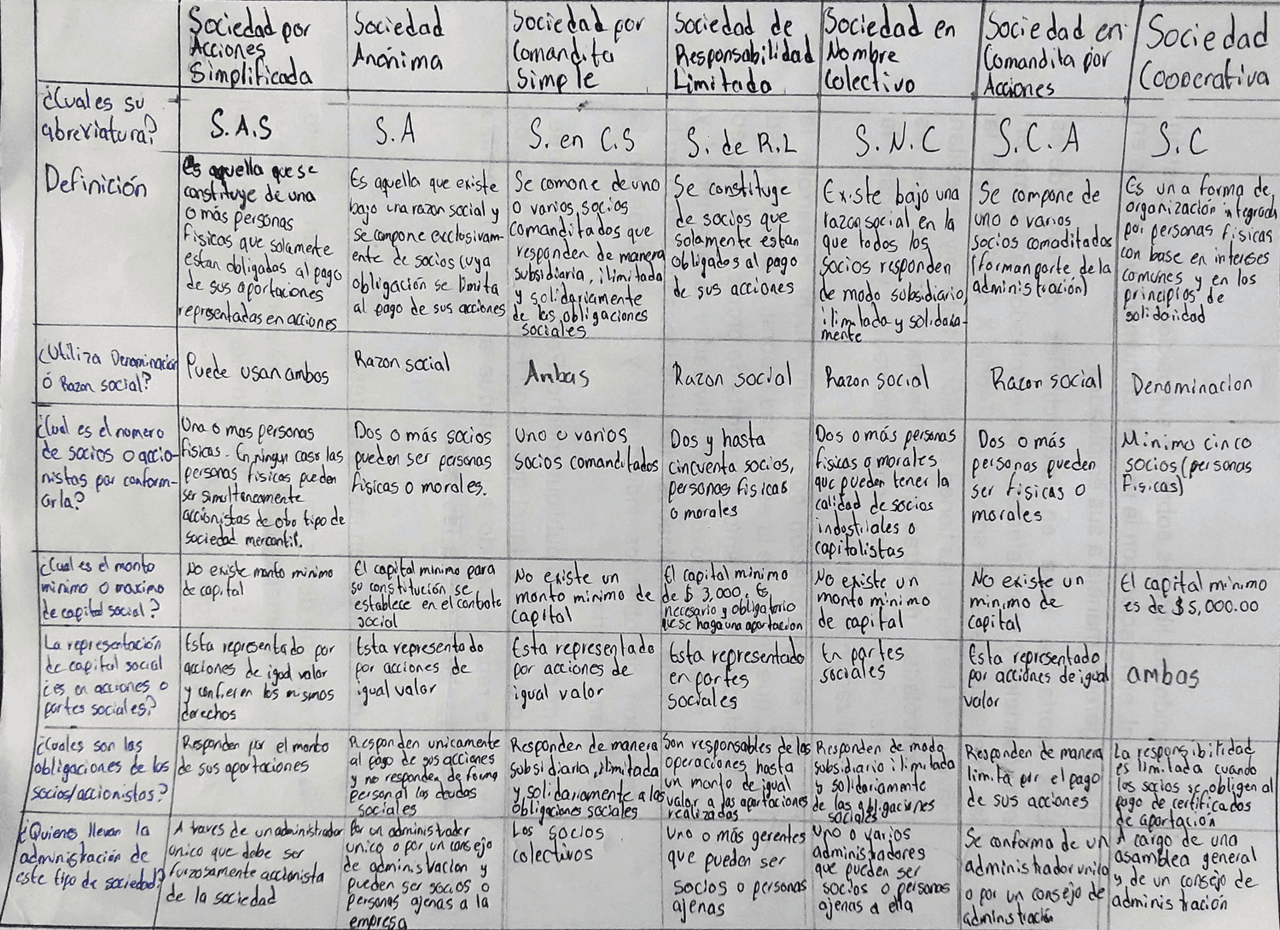 Sociedad por
Acciones
Simplificada
Sociedad
Anónima
Sociedad por
Comandita
Simple
Sociedad de
Responsabilidad
Limitada
Sociedad en
Nombre
Colectivo
Sociedad en
Comandita por
Acciones
Sociedad
Cooperativa
¿Cuales su
abreviatura?
S.A.S
S.A
S. en C.S
S. de R.L
S.N.C
S.C.A
S.C
Definición
Es aquella que se
constituye de una
o más personas
físicas que solamente
estan obligadas al pago
de sus aportaciones
representadas en acciones
Es aquella que existe
bajo una razon social y
se compone exclusivam-
ente de socios cuya
obligación se limita
al pago de sus acciones
Se comone de uno
o varios, socios
comanditados que
responden de manera
subsidiaria, ilimitada
y solidariamente
de las obligaciones
sociales
Se constituge
de socios que
solamente estan
obligados al pago
de sus acciones
Existe bajo una
razon social en la
que todos los
socios responden
de modo subsidiario,
ilimitada y solidara-
mente
Se compone de
uno o varios
socios comoditados
(forman parte de la
administración)
Es una forma de
organización integrada
por personas físicas
con base en intereses
comunes y en los
principios de
solidaridad
¿Utiliza Denominación
ó Razon social?
Puede usan ambos
Razon social
Ambas
Razon social
Razon social
Razon social
Denominacion
¿Cual es el numero
de socios o accio-
nistas por conform-
arla?
Una o mas personas
fisicas. En ningun caso las
personas fisicas pueden
ser simultáneamente
accionistas de otro tipo de
sociedad mercantil.
Dos o más socios
pueden ser personas
fisicas o morales.
Uno o varios
socios comanditados
Dos y hasta
cincuenta socios,
personas fisicas
o morales
Dos o más personas
fisicas o morales
que pueden tener la
calidad de socios
industriales o
capitolistas
Dos o más
personas pueden
ser fisicas o
morales
Minimo cinco
socios (personas
Fisicas)
¿Cual es el monto
minimo o maximo
de capital social?
No existe monto minimo
de capital
El capital minimo para
su constitución se
establece en el contrato
social
No existe un
monto minimo de
capital
El capital minimo
de $ 3,000, Es
necesario y obligatorio
que se haga una aportacion
No existe un
monto minimo
de capital
No existe un
minimo de
capital
El capital minimo
es de $5,000.00
La representación
de capital social
¿es en acciones o
partes sociales?
Esta representado por
acciones de igual valor
y confieren los mismos
derechos
Esta representado
por acciones de
igual valor
Esta representado
por acciones de
igual valor
Esta representado
en partes
sociales
En partes
sociales
Esta representado
por acciones de igual
valor
ambas
¿Cuales son las
obligaciones de los
socios/accionistas?
Responden por el monto
de sus aportaciones
Responden unicamente
al pago de sus acciones
y no responden de forma
personal las deudas
sociales
Responden de manera
subsidiaria, ilimitada
y solidariamente a las
obligaciones sociales
Son responsables de las
operaciones hasta
un monto de igual
valor a las aportaciones
realizadas
Responden de modo
subsidiario ilimitada
y solidariamente
de las obligaciones
sociales
Responden de manera
limita por el pago
de sus acciones
La responsibilidad
es limitada cuando
los socios se obligen al
pago de certificados
de aportación
¿Quienes llevan la
administración de
este tipo de sociedad?
A traves de un administrador
unico que debe ser
forzosamente accionista
de la sociedad
Por un administrador
unico o por un consejo
de administracion y
pueden ser socios o
personas ajenas a la
empresa
Los socios
colectivos
Uno o más gerentes
que pueden ser
socios o personas
ajenas
uno o varios
administradores
que pueden ser
socios o personas
ajenas a ella
Se conforma de un
administrador unico
o por un consejo de
administración
A cargo de una
asamblea general
y de un consejo de
administración